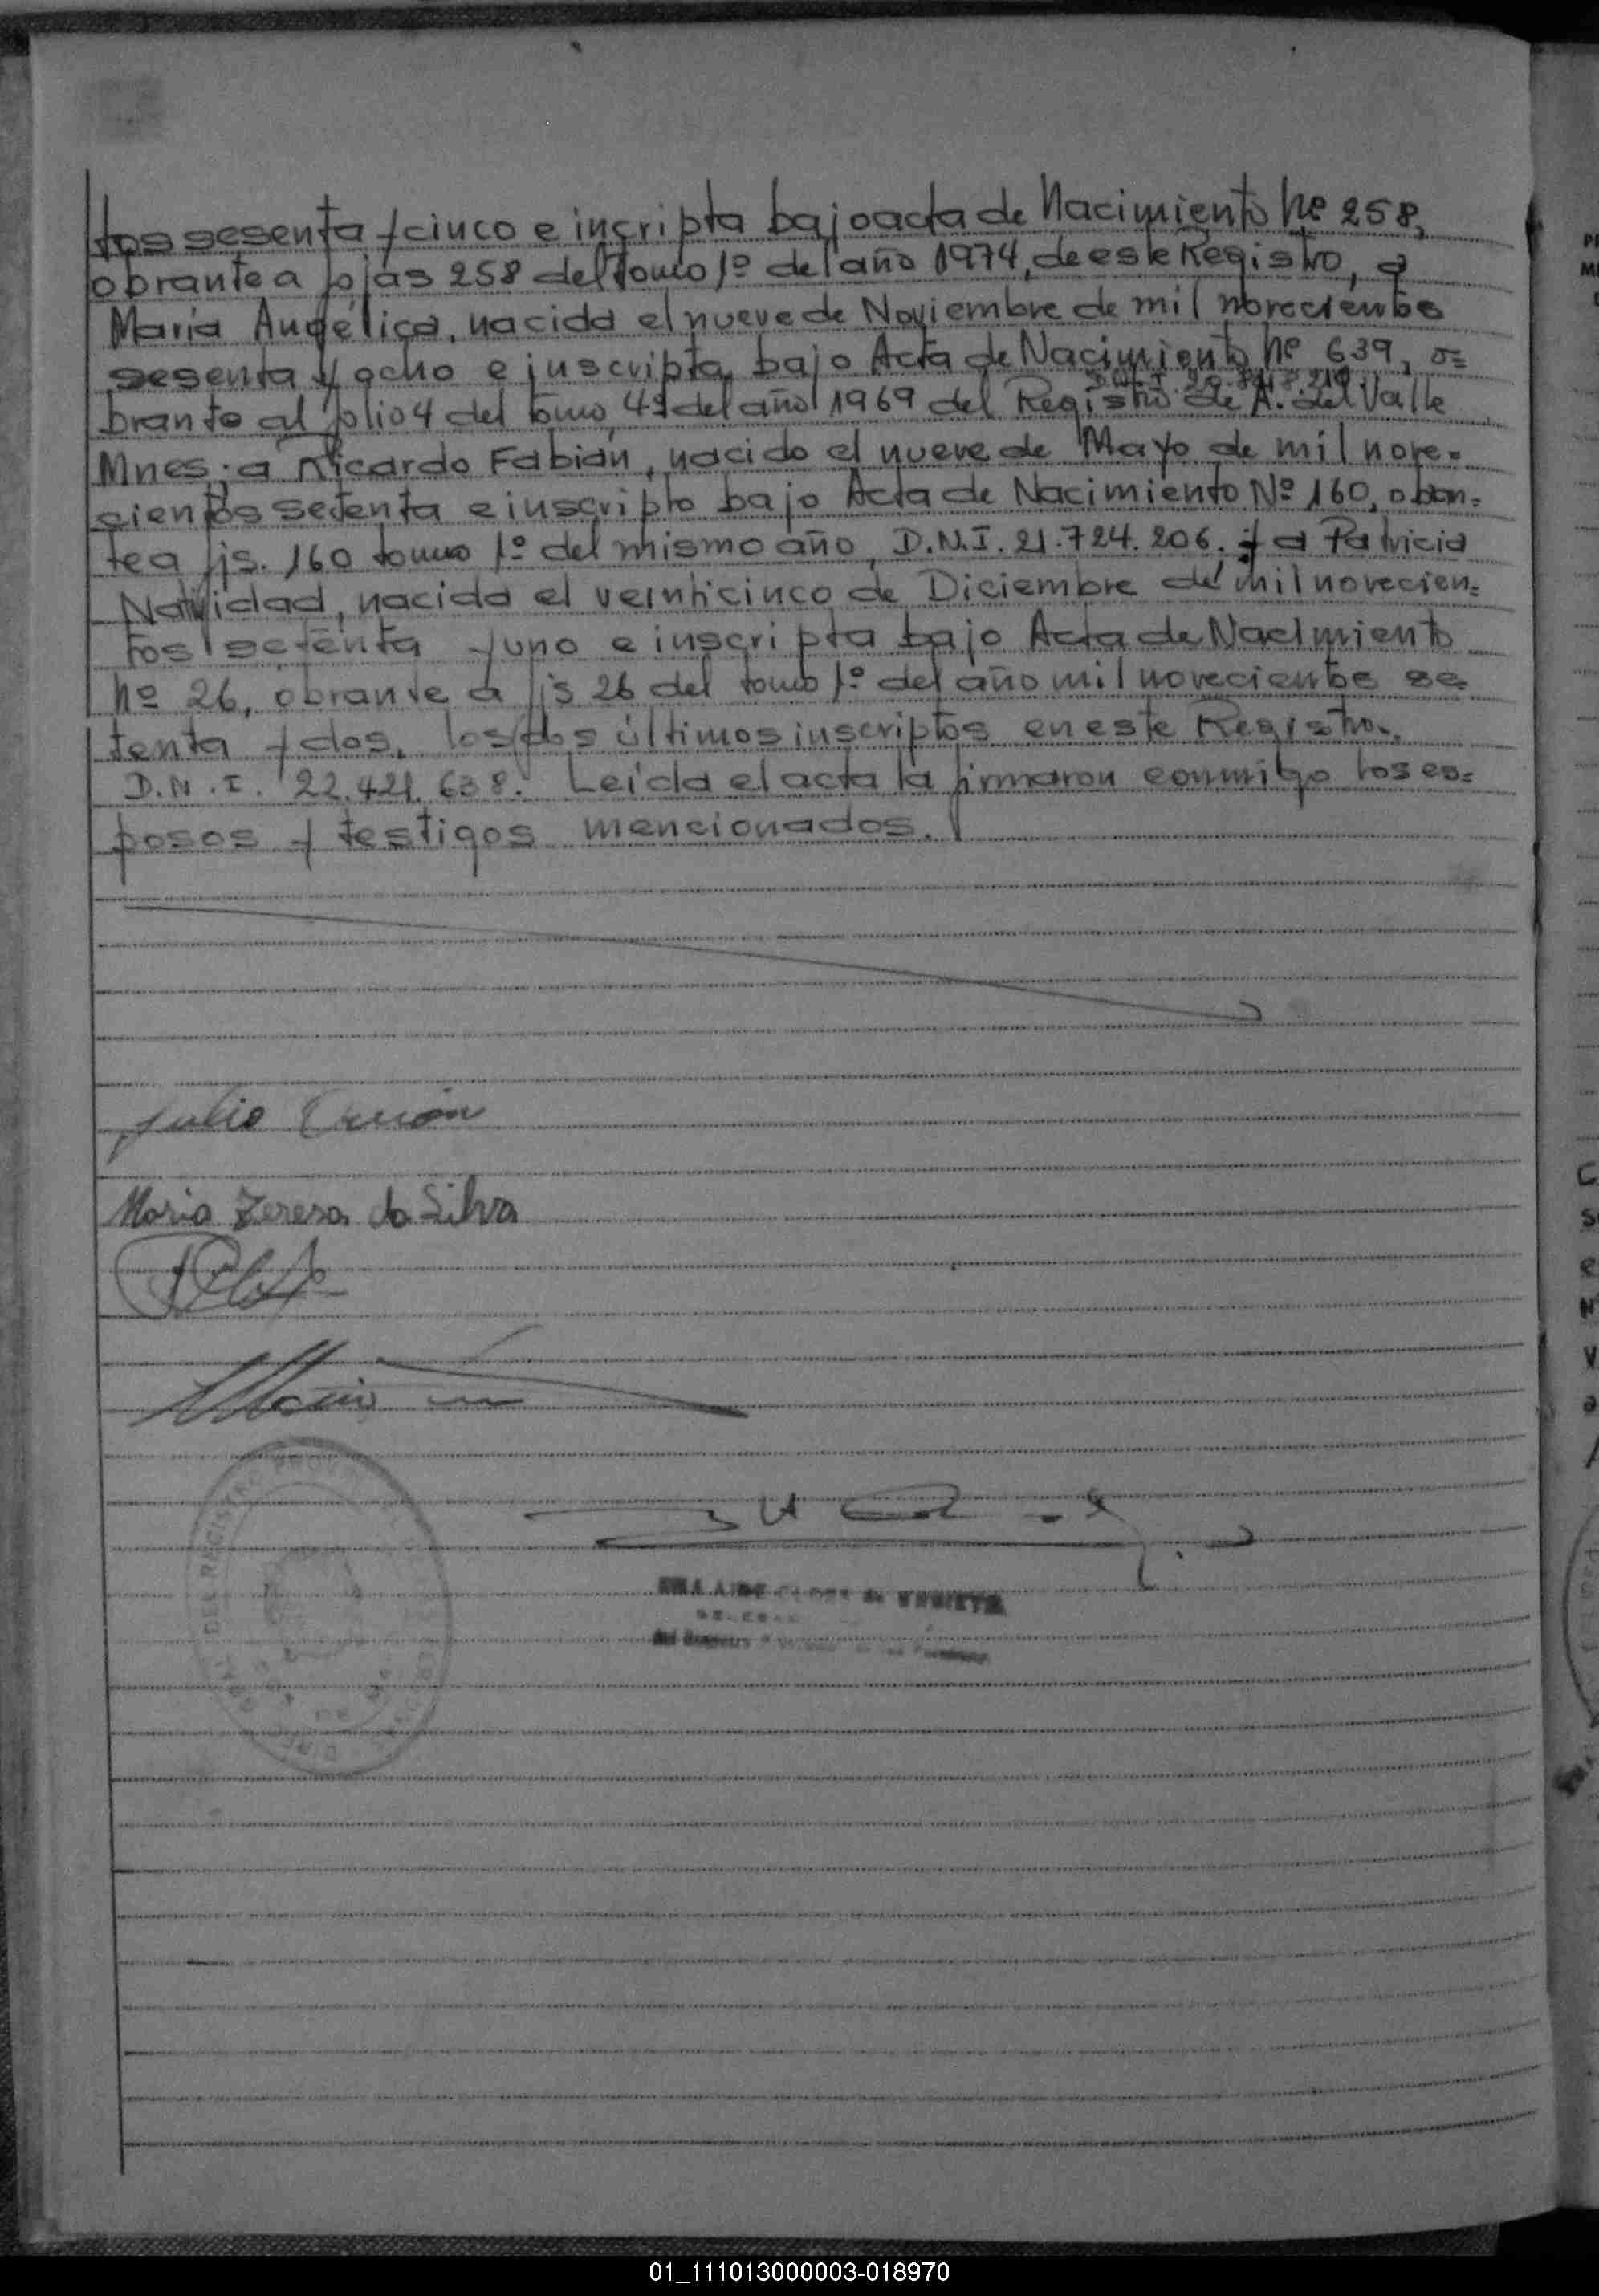 tos sesenta y cinco e incripta bajo acta de Nacimiento Nº 258,
obrante a fojas 258 del Tomo 1º del año 1974, de este Registro, a
María Angélica, nacida el nueve de Noviembre de mil novecientos
sesenta y ocho e inscripta bajo Acta de Nacimiento Nº 639, o=
brante al folio 4 del tomo 4º del año 1969 del Registro de A. del Valle
Mnes; a Ricardo Fabián, nacido el nueve de Mayo de mil nove=
cientos setenta e inscripto bajo Acta de Nacimiento Nº 160, obran=
te a fjs. 160 tomo 1º del mismo año, D.N.I. 21.724.206. y a Patricia
Natividad, nacida el veinticinco de Diciembre de mil novecien=
tos setenta y uno e inscripta bajo Acta de Nacimiento
Nº 26, obrante a fjs 26 del tomo 1º del año mil novecientos se
tenta y dos, los dos últimos inscriptos en este Registro.
D.N.I. 22.421.638. Leída el acta la firmaron conmigo los es=
posos y testigos mencionados.
Julio
Maria Teresa da Silva
01_111013000003-018970